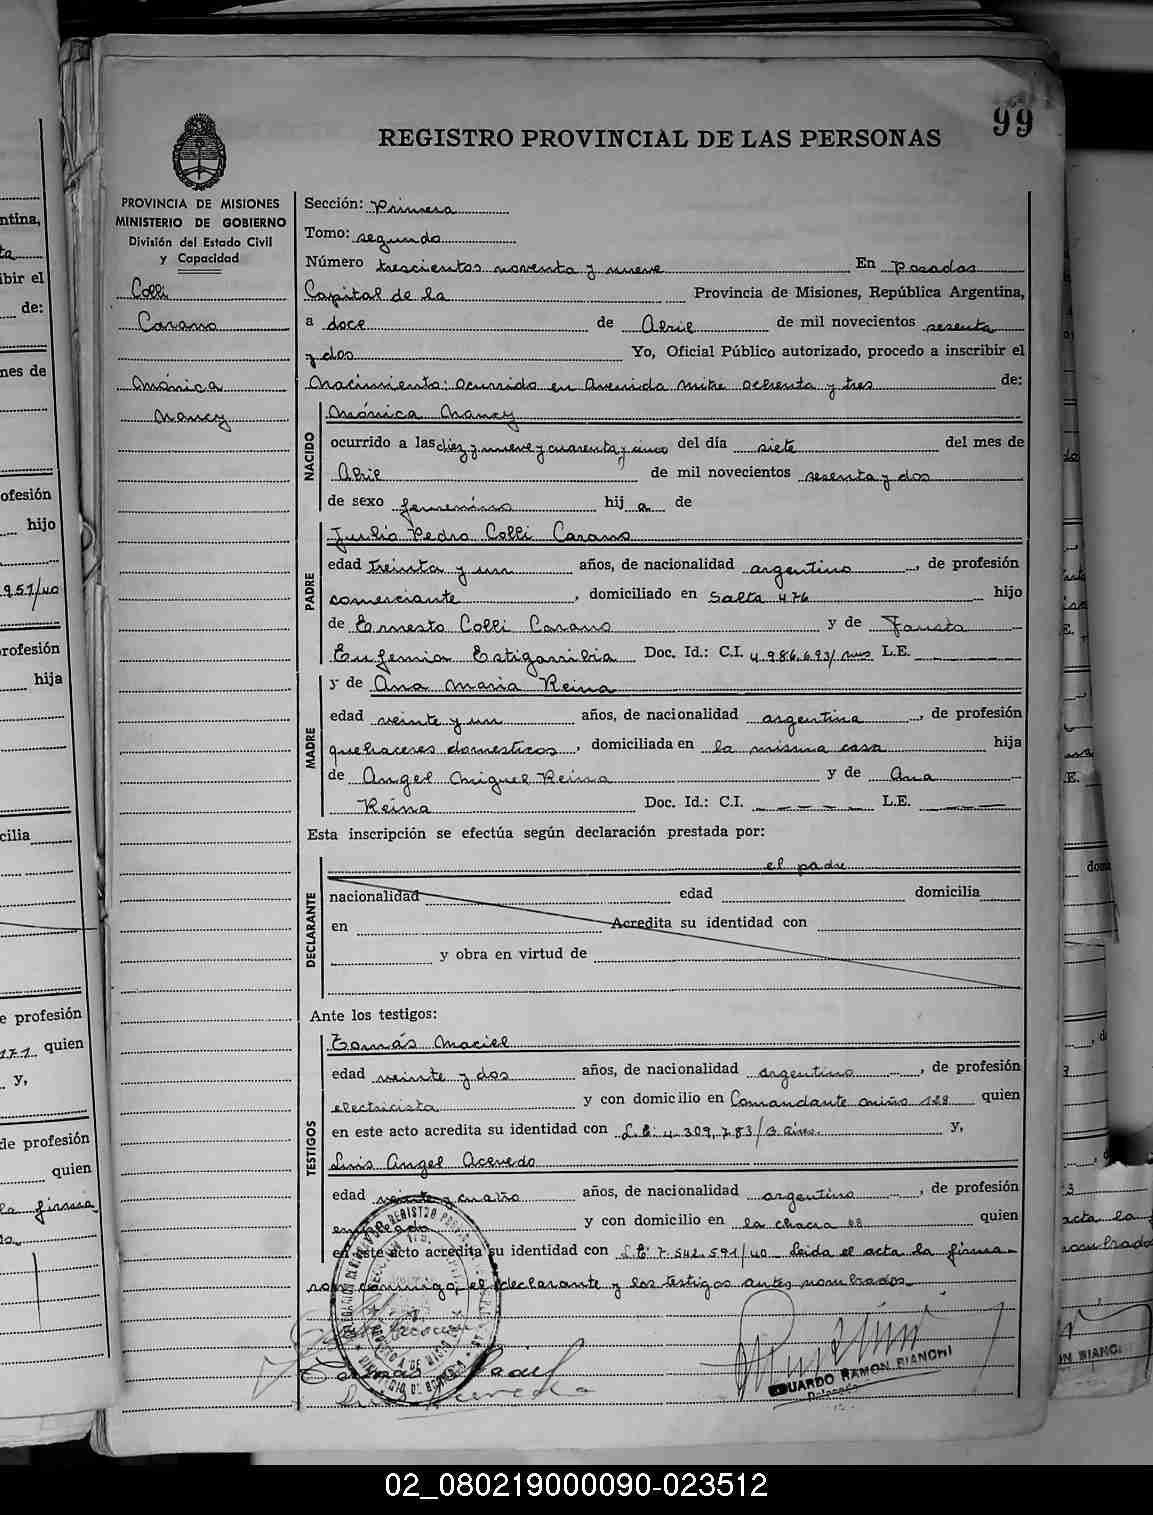 99
REGISTRO PROVINCIAL DE LAS PERSONAS
PROVINCIA DE MISIONES
MINISTERIO DE GOBIERNO
División del Estado Civil
y Capacidad
Colli
Carano
Mónica
Nancy
Sección: Primera
Tomo: segundo
Número trescientos noventa y nueve En Posadas
Capital de la Provincia de Misiones, República Argentina,
a doce de Abril de mil novecientos sesenta
y dos Yo, Oficial Público autorizado, procedo a inscribir el
Nacimiento: ocurrido en Avenida Mitre ochenta y tres de:
NACIDO
Mónica Nancy
ocurrido a las diez y nueve y cuarenta y cinco del día siete del mes de
Abril de mil novecientos sesenta y dos
de sexo femenino hij a de
PADRE
Julio Pedro Colli Carano
edad treinta y un años, de nacionalidad argentino, de profesión
comerciante, domiciliado en Salta 476 hijo
de Ernesto Colli Carano y de Fausta
Eufemia Estigarribia Doc. Id.: C.I. 4.986.693/ L.E.
MADRE
y de Ana Maria Reina
edad veinte y un años, de nacionalidad argentina, de profesión
quehaceres domesticos, domiciliada en la misma casa hija
de Angel Miguel Reina y de Ana
Reina Doc. Id.: C.I. L.E.
Esta inscripción se efectúa según declaración prestada por:
DECLARANTE
el padre
nacionalidad edad domicilia
en Acredita su identidad con
y obra en virtud de
Ante los testigos:
TESTIGOS
Tomás Maciel
edad veinte y dos años, de nacionalidad argentino, de profesión
electricista y con domicilio en Comandante Miño 128 quien
en este acto acredita su identidad con L.E. 4.309.783/ y,
Luis Angel Acevedo
edad veinte y cuatro años, de nacionalidad argentino, de profesión
empleado y con domicilio en la chacra 68 quien
en este acto acredita su identidad con L.E. 7.542.591/40 Leida el acta la firma-
ron conmigo, el declarante y los testigos antes nombrados.
EDUARDO RAMON BIANCHI
Delegado
02_080219000090-023512